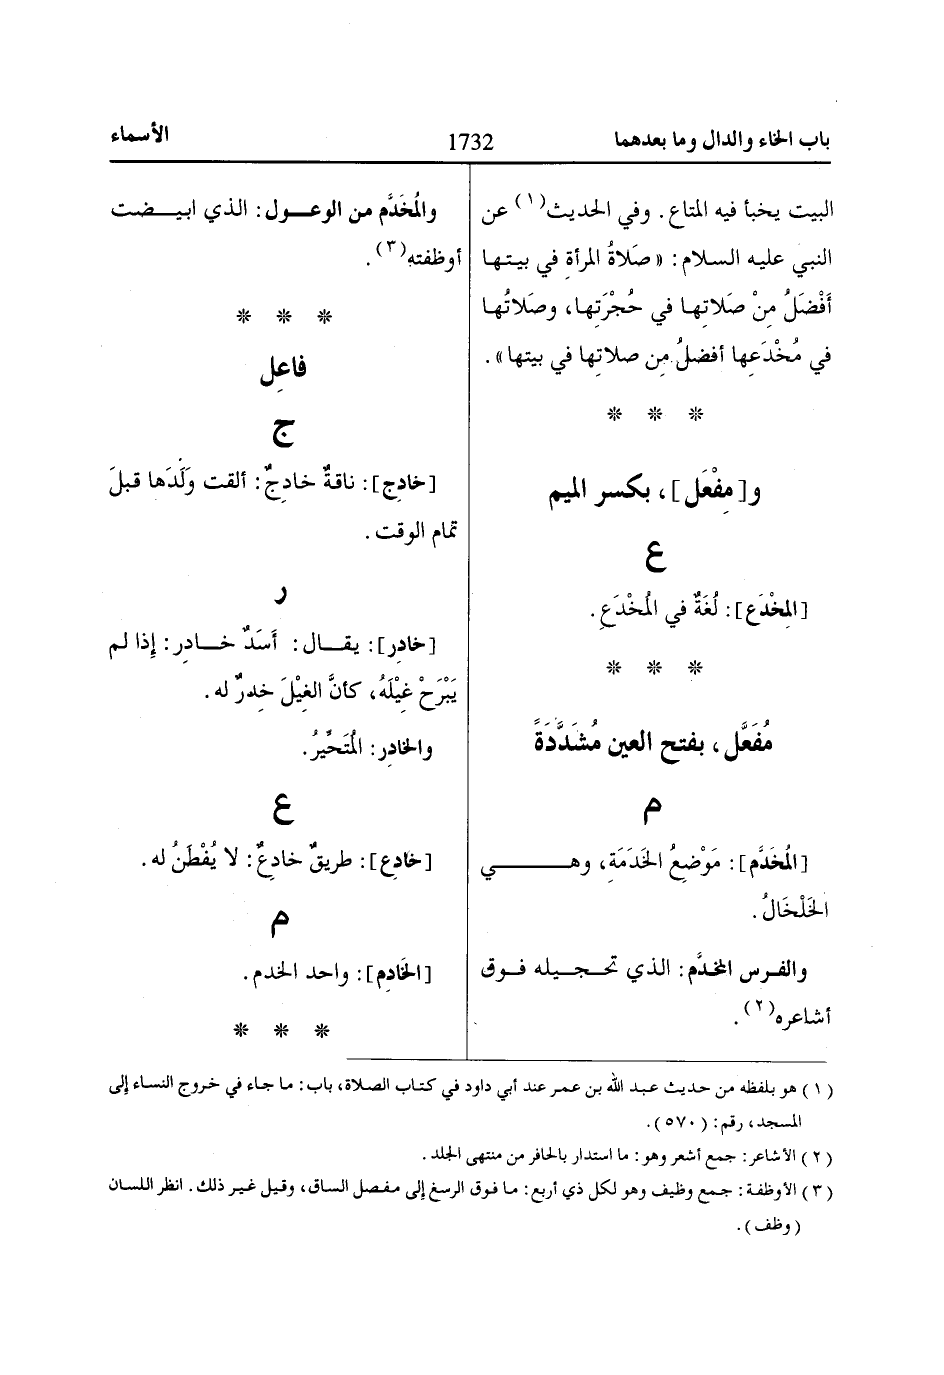 باب الخاء والدال وما بعدهما
1732
الأسماء
البيت يخبأ فيه المتاع. وفي الحديث(١) عن
النبي عليه السلام: «صَلاةُ المرأة في بيتـها
أَفْضَلُ مِنْ صَلاتِها في حُجْرَتِها، وصَلاتُها
في مُخْدَعِها أفضلُ مِن صلاتِها في بيتها».
* * *
و[مِفْعَل]، بكسر الميم
ع
[المِخْدَع]: لُغَةٌ في المُخْدَعِ.
* * *
مُفَعَّل، بفتح العين مُشَدَّدَةً
م
[المُخَدَّم]: مَوْضِعُ الخَدَمَةِ، وهــــي
الخَلْخَالُ.
والفـرس المخدَّم: الذي تحـجـيله فـوق
أشاعره(٢).
والمُخَدَّم من الوعـــول: الذي ابيــضت
أوظفته(٣).
* * *
فاعِل
ج
[خادِج]: ناقةٌ خادِجٌ: ألقت وَلَدَها قبلَ
تمام الوقت.
ر
[خادِر]: يقــال: أَسَدٌ خــادِر: إِذا لم
يَبْرَحْ غِيْلَهُ، كأنَّ الغِيْلَ خِدرٌ له.
والخادِر: المُتَحَّيِرُ.
ع
[خادِع]: طريقٌ خادِعٌ: لا يُفْطَنُ له.
م
[الخَادِم]: واحد الخدم.
* * *
(١) هو بلفظه من حديث عبد الله بن عمر عند أبي داود في كتاب الصلاة، باب: ما جاء في خروج النساء إلى
المسجد، رقم: (٥٧٠).
(٢) الأشاعر: جمع أشعر وهو: ما استدار بالحافر من منتهى الجلد.
(٣) الأوظفة: جمع وظيف وهو لكل ذي أربع: ما فوق الرسغ إلى مفصل الساق، وقيل غير ذلك. انظر اللسان
(وظف).